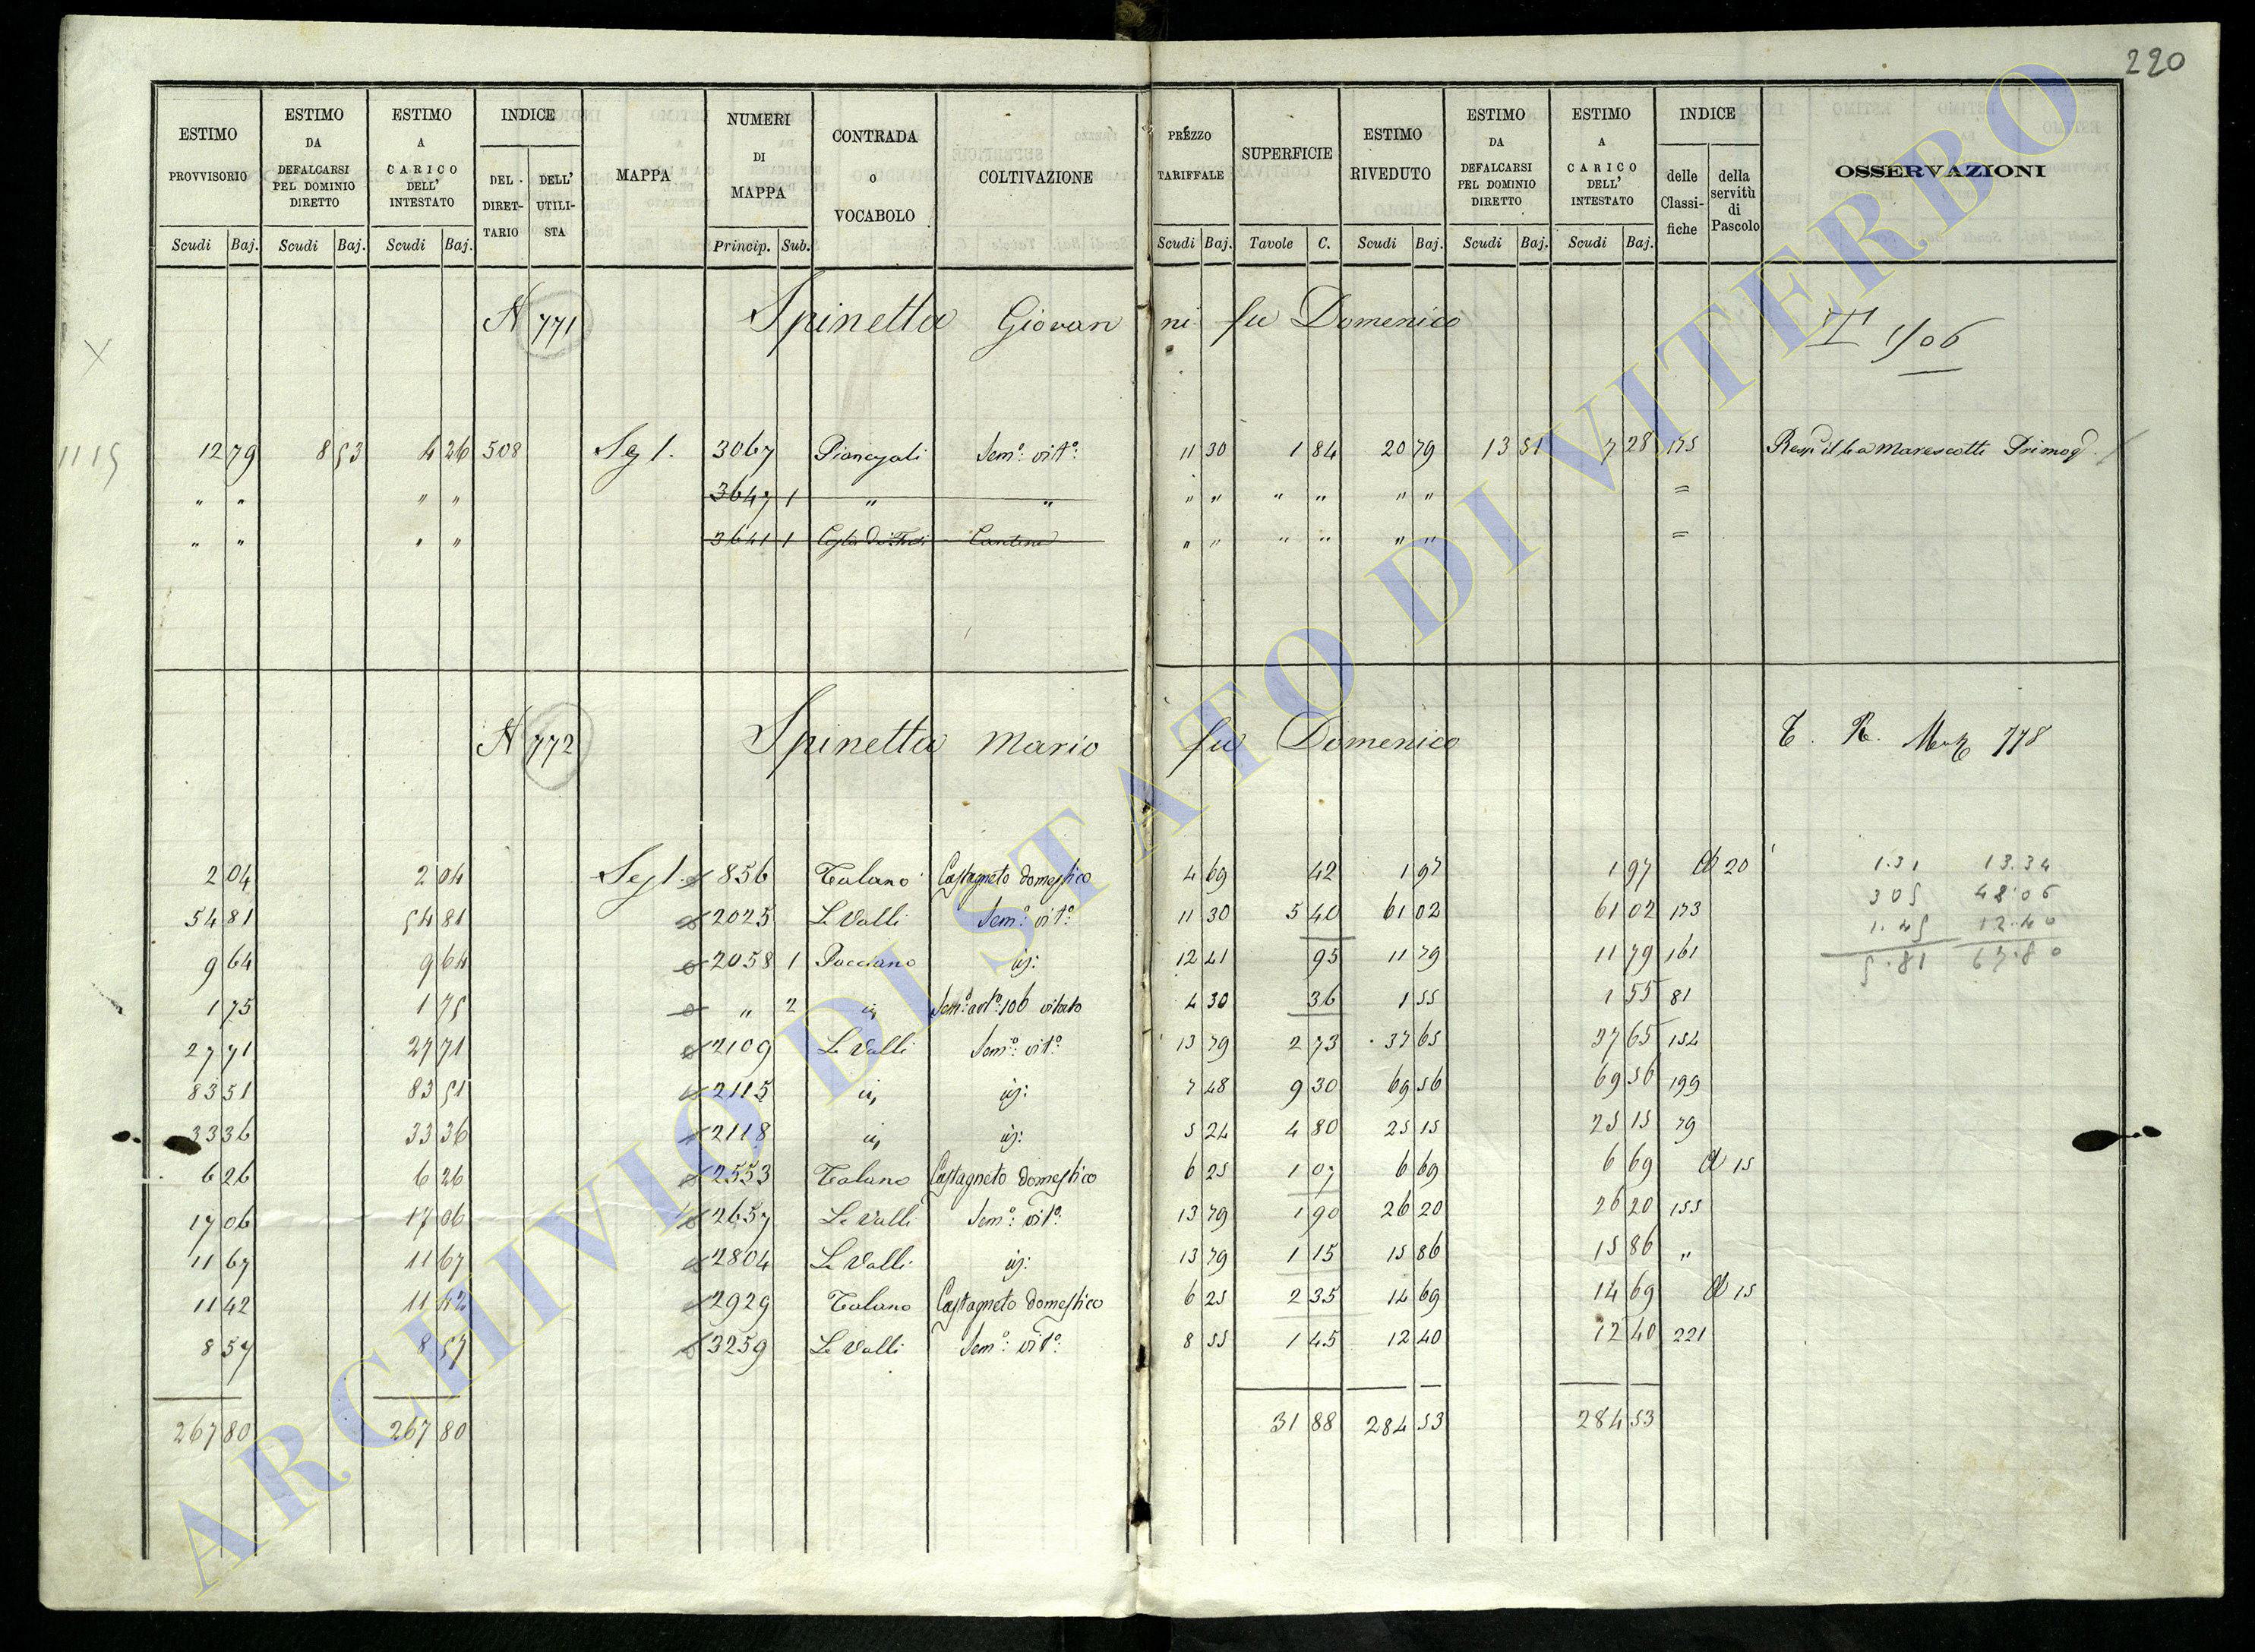 220
ESTIMO PROVVISORIO
ESTIMO DA DEFALCARSI PEL DOMINIO DIRETTO
ESTIMO A CARICO DELL' INTESTATO
INDICE
DEL DIRETTARIO
DELL' UTILISTA
MAPPA
NUMERI DI MAPPA
CONTRADA O VOCABOLO
COLTIVAZIONE
PREZZO TARIFFALE
SUPERFICIE
ESTIMO RIVEDUTO
ESTIMO DA DEFALCARSI PEL DOMINIO DIRETTO
ESTIMO A CARICO DELL' INTESTATO
INDICE
delle Classifiche
della servitù di Pascolo
OSSERVAZIONI
Scudi Baj. Scudi Baj. Scudi Baj. Princip. Sub. Scudi Baj. Tavole C. Scudi Baj. Scudi Baj. Scudi Baj.
N 771 Spinetta Giovanni fu Domenico I 1/06
X
1115 12 79 8 53 4 26 508 Seg I. 3067 Piancyali Sem.o vit.o 11 30 1 84 20 79 13 51 7 28 175 Marescotti Primog
" " " " 3647 1 " " " " " " " " =
" " " " 3641 1 Cantina " " " " " " =
N 772 Spinetta Mario fu Domenico T. R. 778
2 04 2 04 Seg I. 856 Talano Castagneto domestico 4 69 42 1 97 1 97 20 1.31 13.34
54 81 54 81 2025 Le Valli Sem.o vit.o 11 30 5 40 61 02 61 02 173 3 05 48.06
9 64 9 64 2058 1 Pacciano id: 12 41 95 11 79 11 79 161 1.45 12.40
1 75 1 75 " 2 id Sem.o vitato 4 30 36 1 55 1 55 81 5.81 67.80
27 71 27 71 2109 Le Valli Sem.o vit.o 13 79 2 73 37 65 37 65 154
83 51 83 51 2115 id id: 7 48 9 30 69 56 69 56 199
33 36 33 36 2118 id id: 5 24 4 80 25 15 25 15 79
6 26 6 26 2553 Talano Castagneto domestico 6 25 1 07 6 69 6 69 15
17 06 17 06 2657 Le Valli Sem.o vit.o 13 79 1 90 26 20 26 20 155
11 67 11 67 2804 Le Valli id: 13 79 1 15 15 86 15 86 "
11 42 11 42 2929 Talano Castagneto domestico 6 25 2 35 14 69 14 69 15
8 57 8 57 3259 Le Valli Sem.o vit.o 8 55 1 45 12 40 12 40 221
267 80 267 80 31 88 284 53 284 53
ARCHIVIO DI STATO DI VITERBO